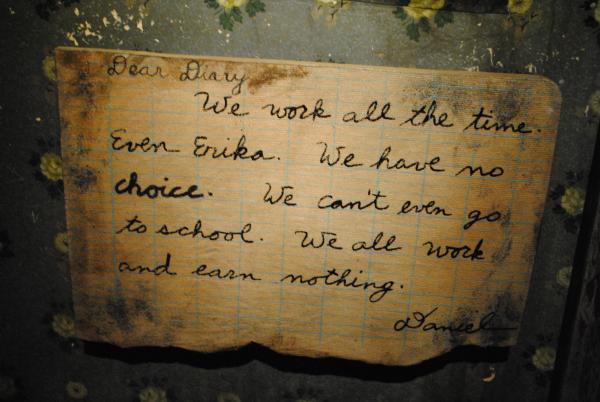 Dear Diary
We work all the time.
Even Erika. We have no
choice. We can't even go
to school. We all work
and earn nothing.
Daniel